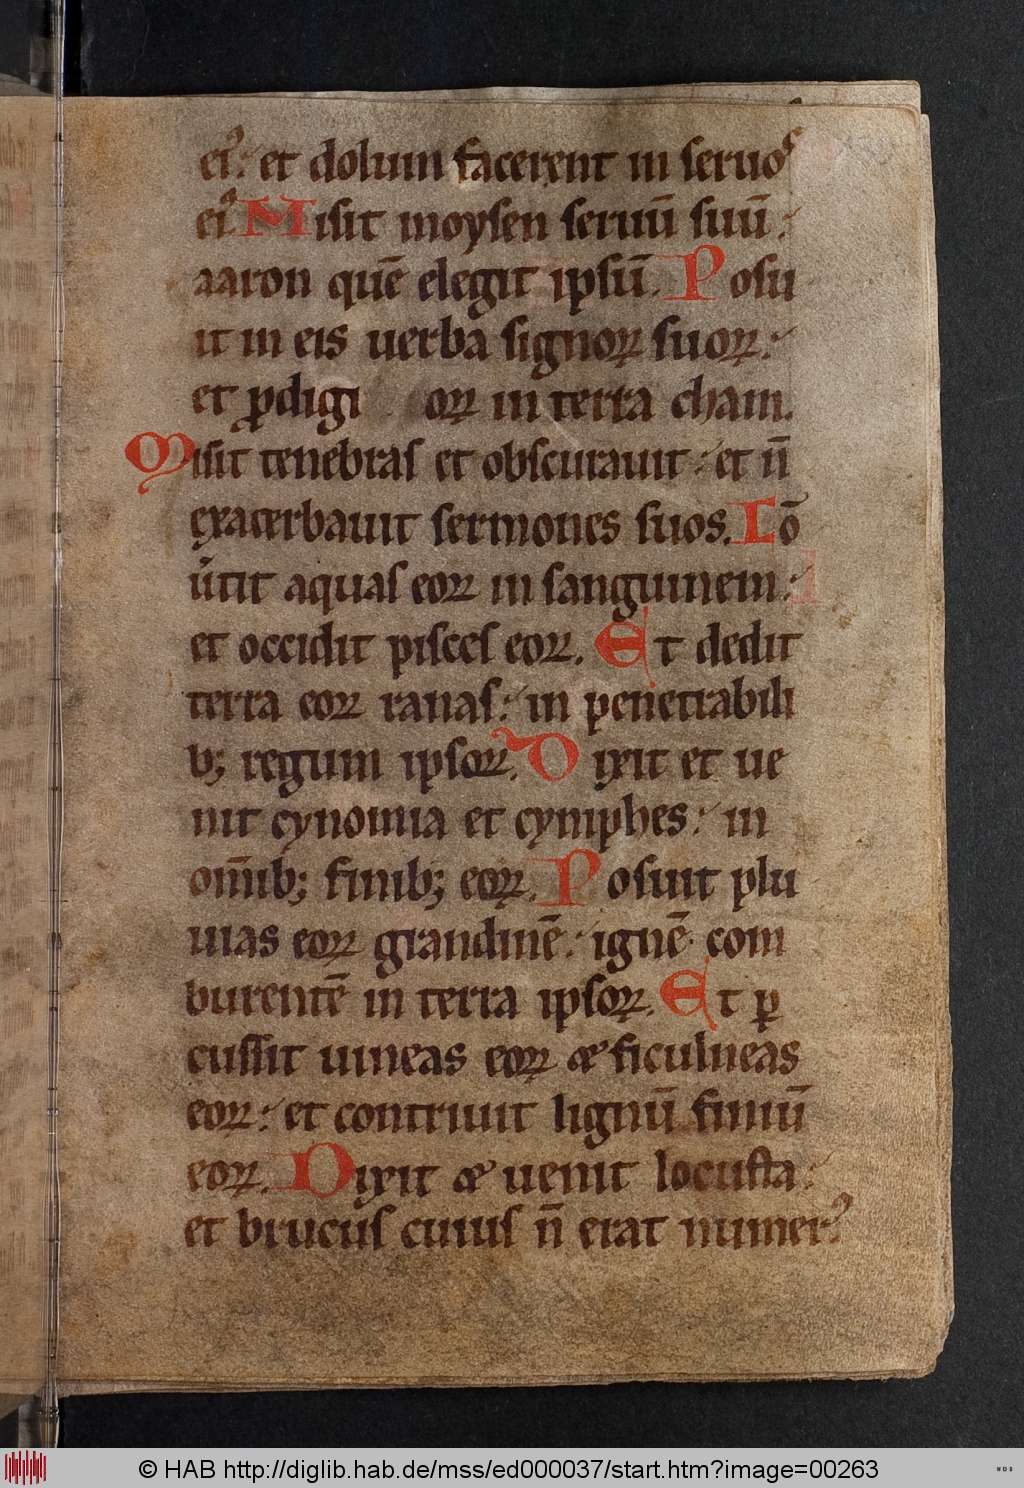 eiꝰ: et dolum facerent in seruos
eiꝰ Misit moysen seruū suū:
aaron quē elegit ipsū. Posu
it in eis uerba signoꝝ suoꝝ:
et ꝓdigi oꝝ in terra cham.
Misit tenebras et obscurauit: et n̄
exacerbauit sermones suos. Cō
u͛tit aquas eoꝝ in sanguinem:
et occidit pisces eoꝝ. Et dedit
terra eoꝝ ranas: in penetrabili
b; regum ipsoꝝ. Dixit et ue
nit cynomia et cyniphes: in
om̄ib; finib; eoꝝ. Posuit plu
uias eoꝝ grandinē: ignē com
burentē in terra ipsoꝝ. Et ꝑ
cussit uineas eoꝝ æ ficulneas
eoꝝ: et contriuit lignū finiū
eoꝝ. Dixit æ uenit locusta:
et brucus cuius n̄ erat numerꝰ
© HAB http://diglib.hab.de/mss/ed000037/start.htm?image=00263